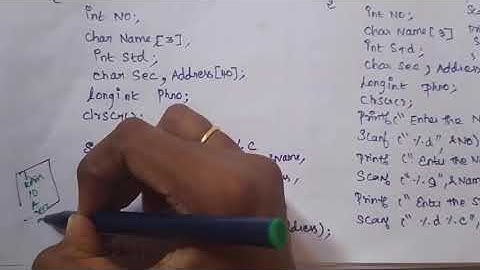 int NO;
Char Name[3],
int Std;
Char Sec, Address[40];
longint Phno;
clrscr();
S
%.C
Name,
ddress);
int NO;
Char Name[3]
int Std;
Char Sec, Address
longint phno;
clrscr();
Printf ("Enter the N
Scanf ("%.d", &NO)
Printf ("Enter the N
Scanf ("%.s", &Nam
Printf ("Enter the S
Scanf ("%.d %.c",
10
A